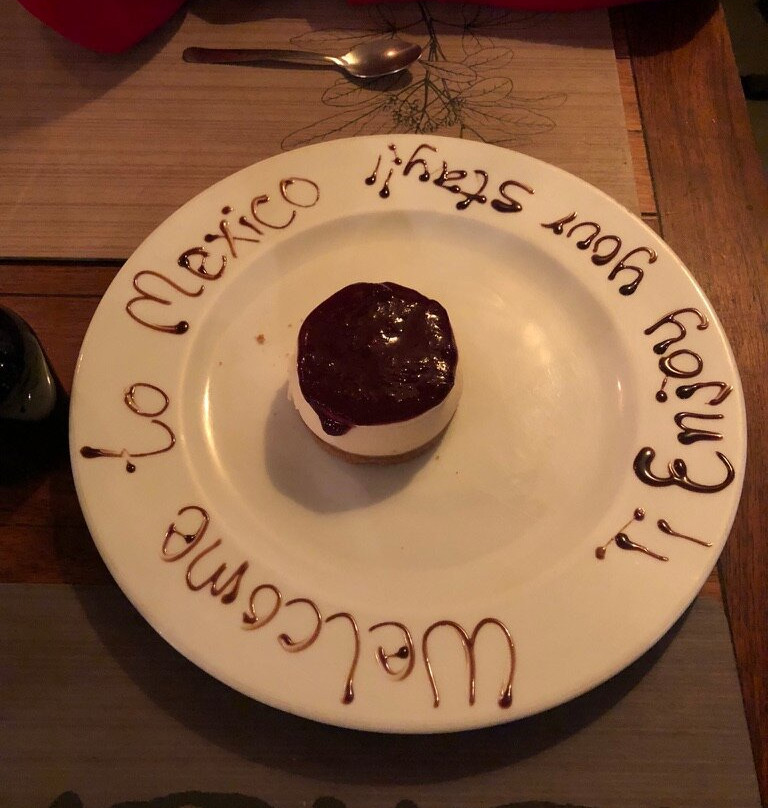 Welcome to Mexico
¡¡Enjoy your stay!!